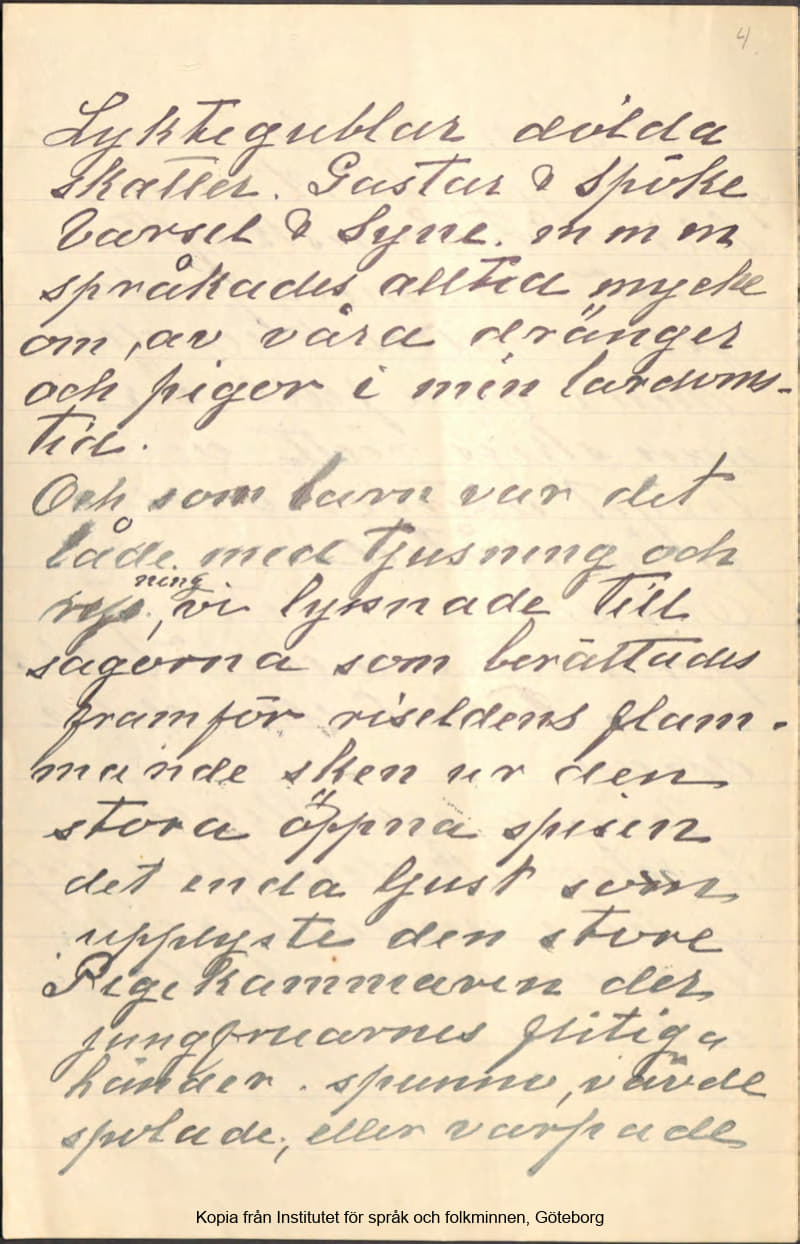 4.
Lyktegubbar dolda
skatter. Gastar & Spöke
Varsel & Syne. m m m
språkades alltid mycke
om, av våra dränger
och pigor i min bardoms-
tid.
Och som barn var det
både med tjusning och
ning
rys, vi lyssnade till
sagorna som berättades
framför riseldens flam-
mande sken ur den
stora öppna spisen
det enda ljust som
upplyste den store
Pigekammaren der
jungfruarnes flitiga
händer. spunno, vävde
spolade, eller varpade
Kopia från Institutet för språk och folkminnen, Göteborg